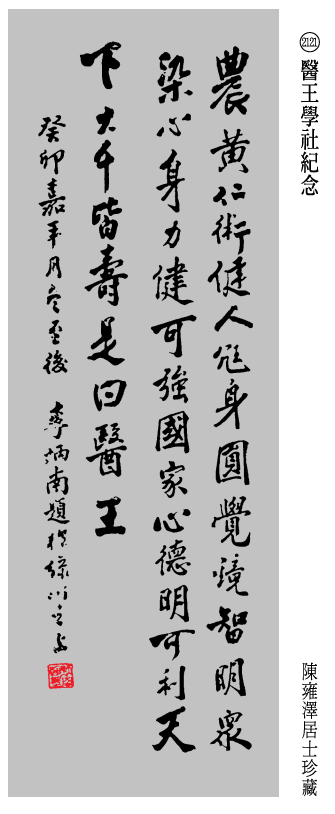 2121 醫王學社紀念
農黃仁術健人色身圓覺境智明眾
染心身力健可強國家心德明可利天
下大千皆壽是曰醫王
癸卯嘉平月冬至後 李炳南題於綠川
陳雍澤居士珍藏